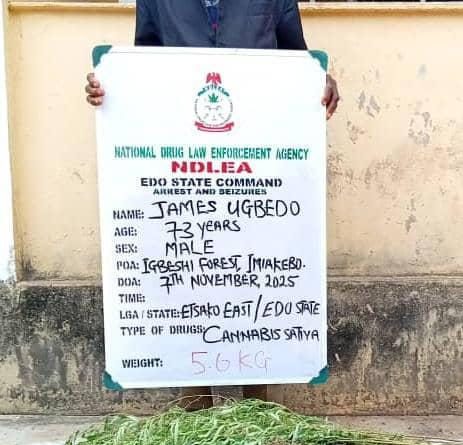 NATIONAL DRUG LAW ENFORCEMENT AGENCY
NDLEA
EDO STATE COMMAND
ARREST AND SEIZURES
NAME: JAMES UGBEDO
AGE: 73 YEARS
SEX: MALE
POA: IGBESHI FOREST, IMIAKEBO.
DOA: 7TH NOVEMBER, 2025
TIME:
LGA / STATE: ETSAKO EAST/EDO STATE
TYPE OF DRUGS: CANNABIS SATIVA
WEIGHT: 5.6 KG